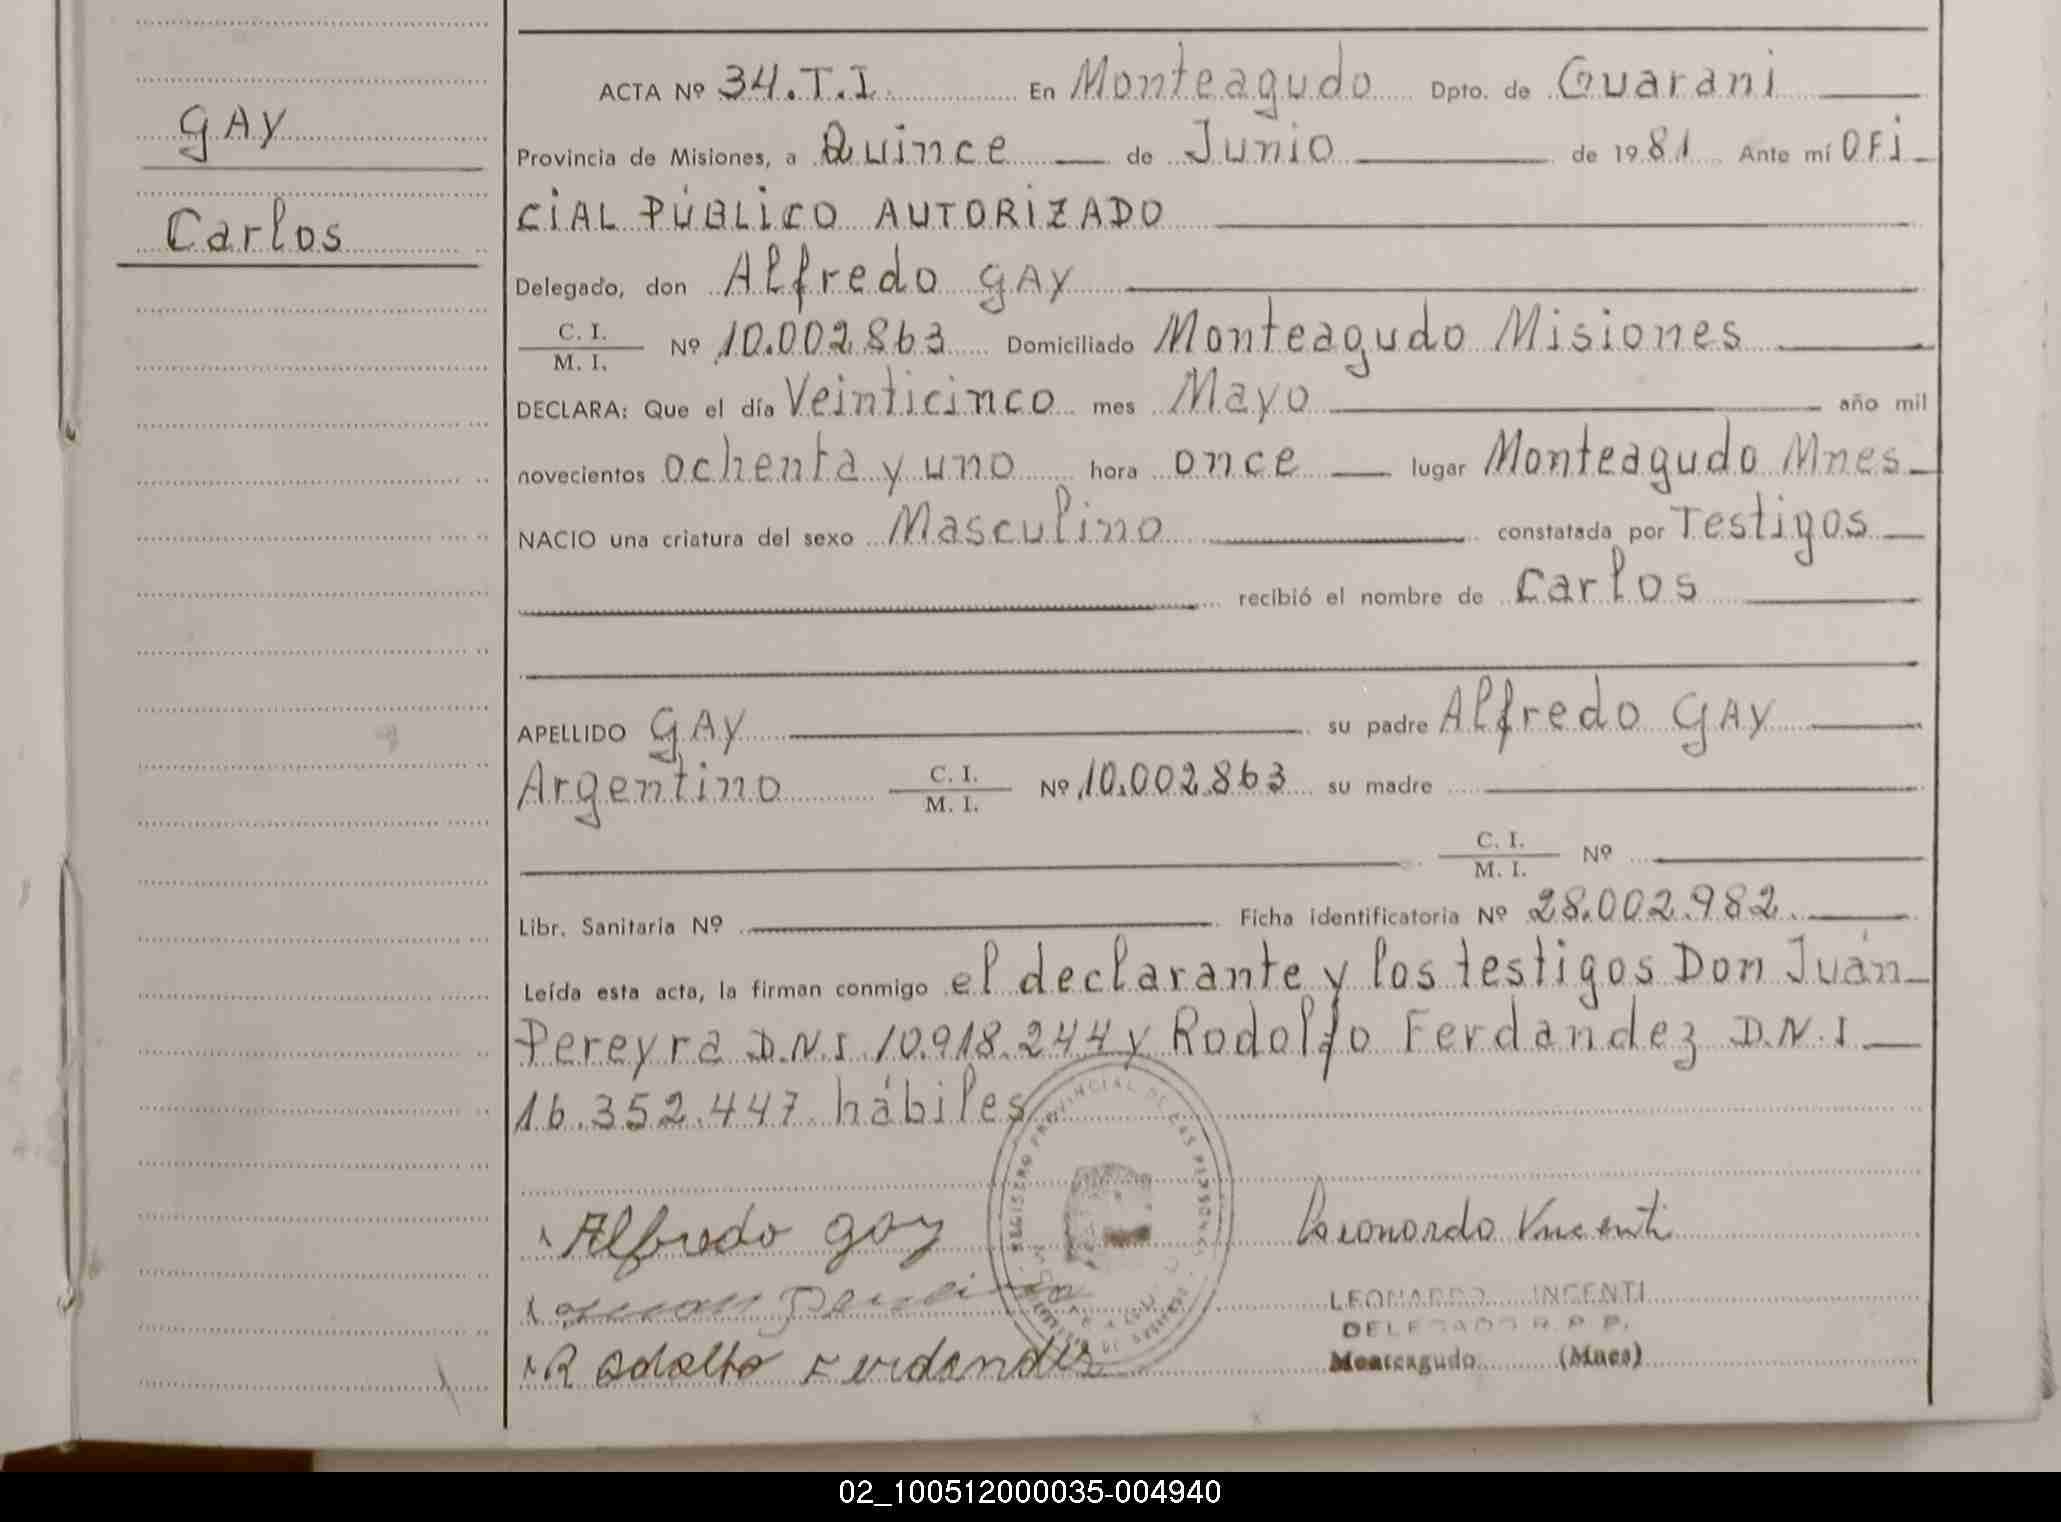 GAY
Carlos
ACTA Nº 34.T.I. En Monteagudo Dpto. de Guarani
Provincia de Misiones, a Quince de Junio de 1981 Ante mí OFi
CiAL PÚBLiCO AUTORiZADO
Delegado, don Alfredo GAY
C. I.
M. I.
Nº 10.002.863 Domiciliado Monteagudo Misiones
DECLARA: Que el día Veinticinco mes Mayo año mil
novecientos ochenta y uno hora once lugar Monteagudo Mnes
NACIO una criatura del sexo Masculino constatada por Testigos
recibió el nombre de Carlos
APELLIDO GAY su padre Alfredo GAY
Argentino C. I.
M. I.
Nº 10.002.863 su madre
C. I.
M. I.
Nº
Libr. Sanitaria Nº Ficha identificatoria Nº 28.002.982.
Leída esta acta, la firman conmigo el declarante y los testigos Don Juan
Pereyra D.N.I. 10.918.244 y Rodolfo Ferdandez D.N.I
16.352.447 hábiles
REGISTRO PROVINCIAL DE LAS PERSONAS
Alfredo gay
Leonardo Vincenti
Juan
LEONARDO INCENTI
DELEGADO R. P. P.
Rodolfo Ferdandez
Monteagudo (Mnes)
02_100512000035-004940